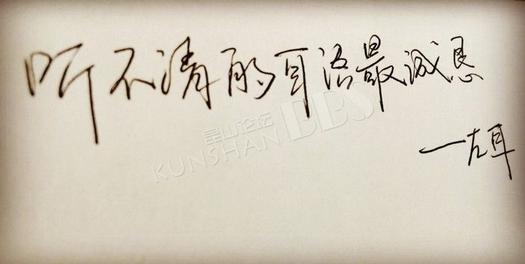 听不清的耳语最诚恳
—左耳
昆山论坛
KUNSHAN BBS